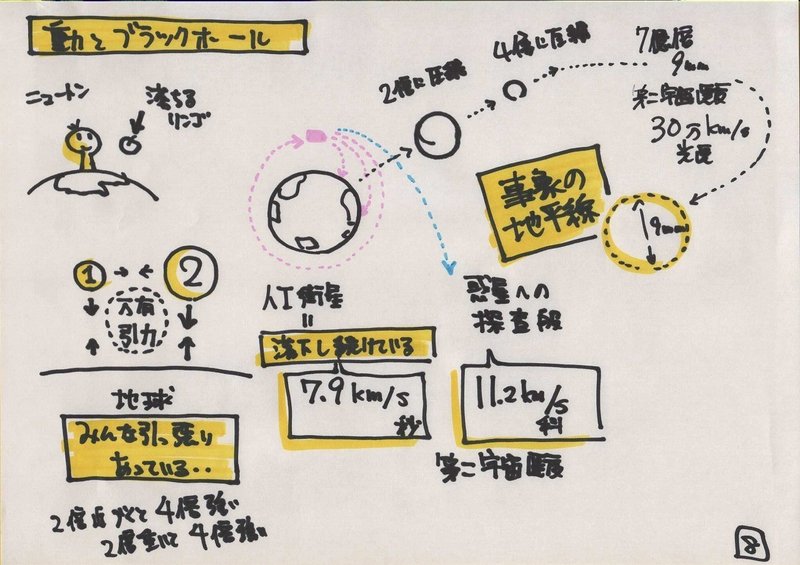 動とブラックホール
ニュートン
落ちる
リンゴ
2倍に圧縮
4倍に圧縮
7億倍
9mm
第二宇宙速度
30万km/s
光速
事象の
地平線
9mm
1
2
万有
引力
地球
みんな引っ張り
あっている・・
2倍近づくと4倍強い
2倍重いと4倍強い
人工衛星
=
落下し続けている
7.9km/s
秒
惑星への
探査
11.2km/s
第二宇宙速度
8